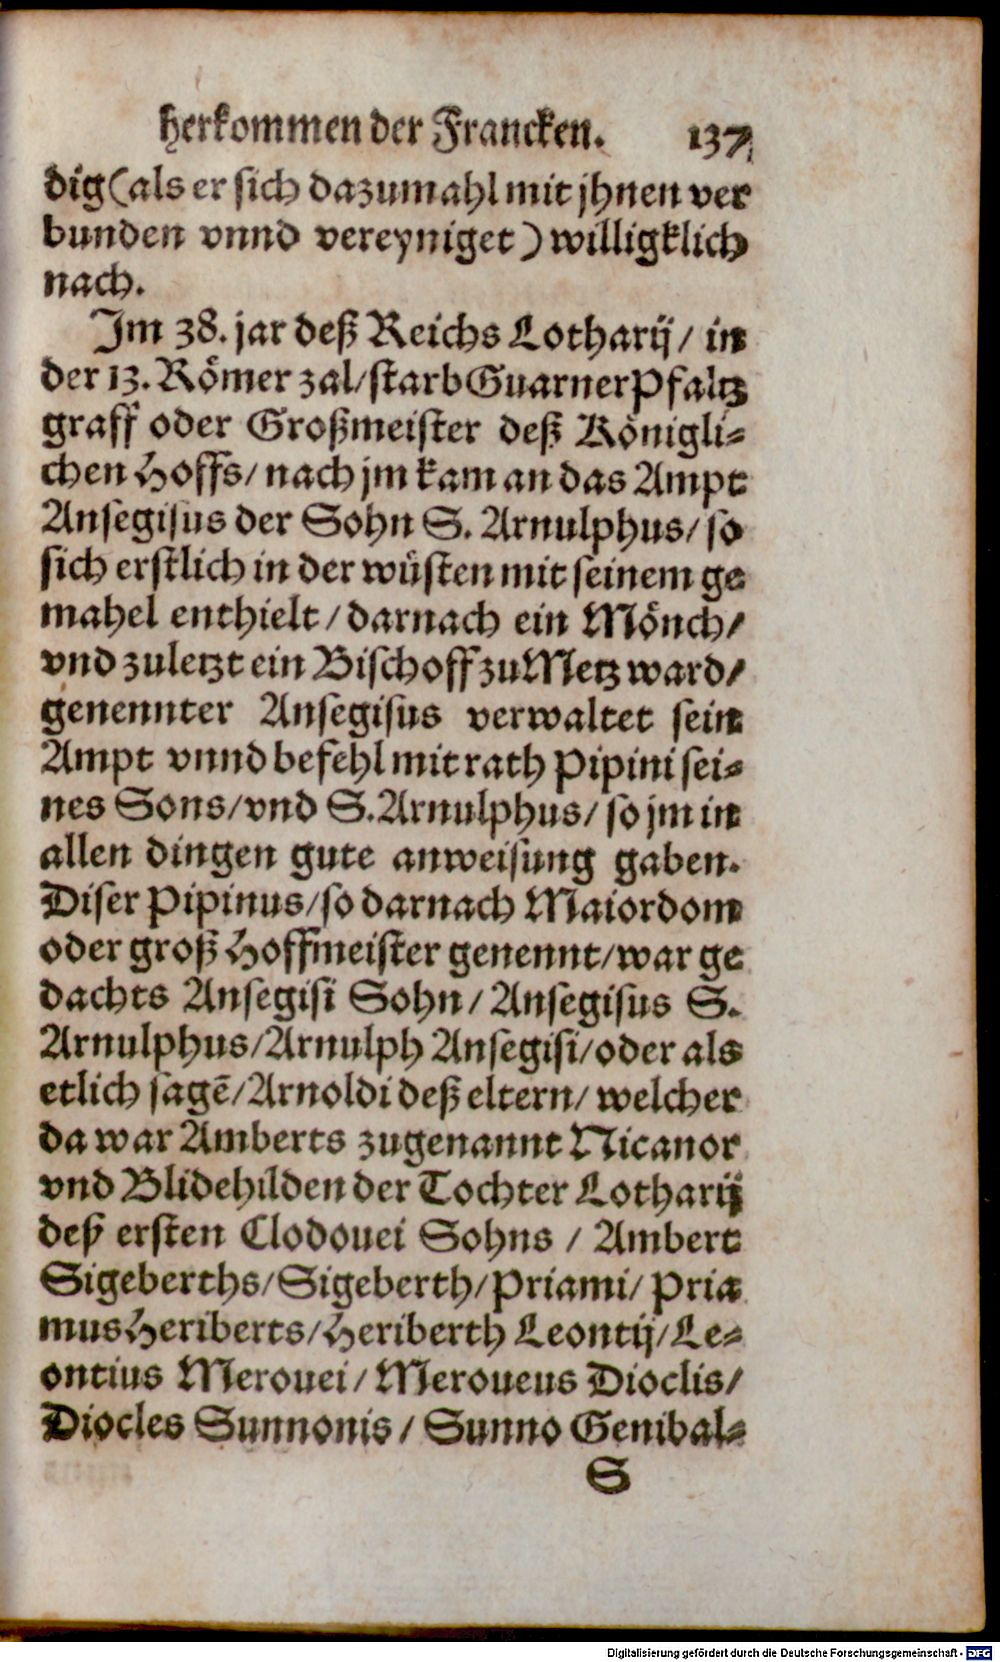 herkommen der Francken. 137
dig(als er sich dazumahl mit jhnen ver
bunden vnnd vereyniget) willigklich
nach.
Im 38. jar deß Reichs Lotharij/ in
der 13. Römer zal/starb Guarner Pfaltz
graff oder Großmeister deß Königli-
chen Hoffs/ nach jm kam an das Ampt
Ansegisus der Sohn S. Arnulphus/ so
sich erstlich in der wüsten mit seinem ge
mahel enthielt/ darnach ein Mönch/
vnd zuletzt ein Bischoff zu Metz ward/
genennter Ansegisus verwaltet sein
Ampt vnnd befehl mit rath Pipini sei-
nes Sons/vnd S.Arnulphus/ so jm in
allen dingen gute anweisung gaben.
Diser Pipinus/so darnach Maiordom
oder groß Hoffmeister genennt/war ge
dachts Ansegisi Sohn/ Ansegisus S.
Arnulphus/Arnulph Ansegisi/oder als
etlich sagē/Arnoldi deß eltern/ welcher
da war Amberts zugenannt Nicanor
vnd Blidehilden der Tochter Lotharij
deß ersten Clodouei Sohns / Ambert
Sigeberths/Sigeberth/Priami/ Pria
mus Heriberts/Heriberth Leontij/Le-
ontius Merouei/ Meroueus Dioclis/
Diocles Sunnonis/ Sunno Genibal-
S
Digitalisierung gefördert durch die Deutsche Forschungsgemeinschaft - DFG